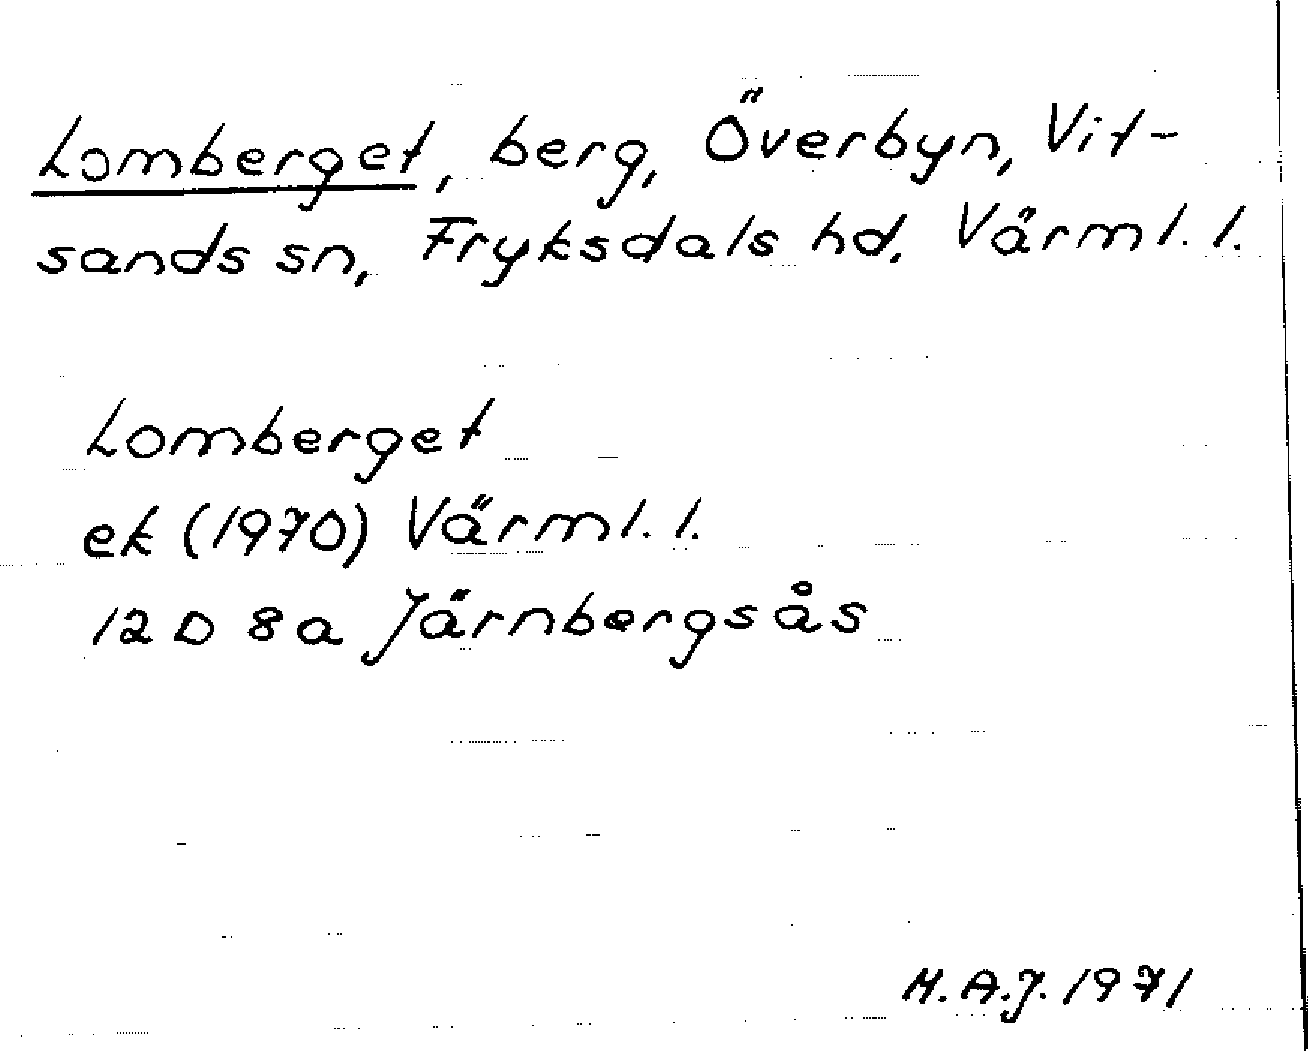 Lomberget, berg, Överbyn, Vit-
sands sn, Fryksdals hd, Värml. l.
Lomberget
ek (1970) Värml. l.
12 D 8 a Järnbergsås
M. A. J. 1971